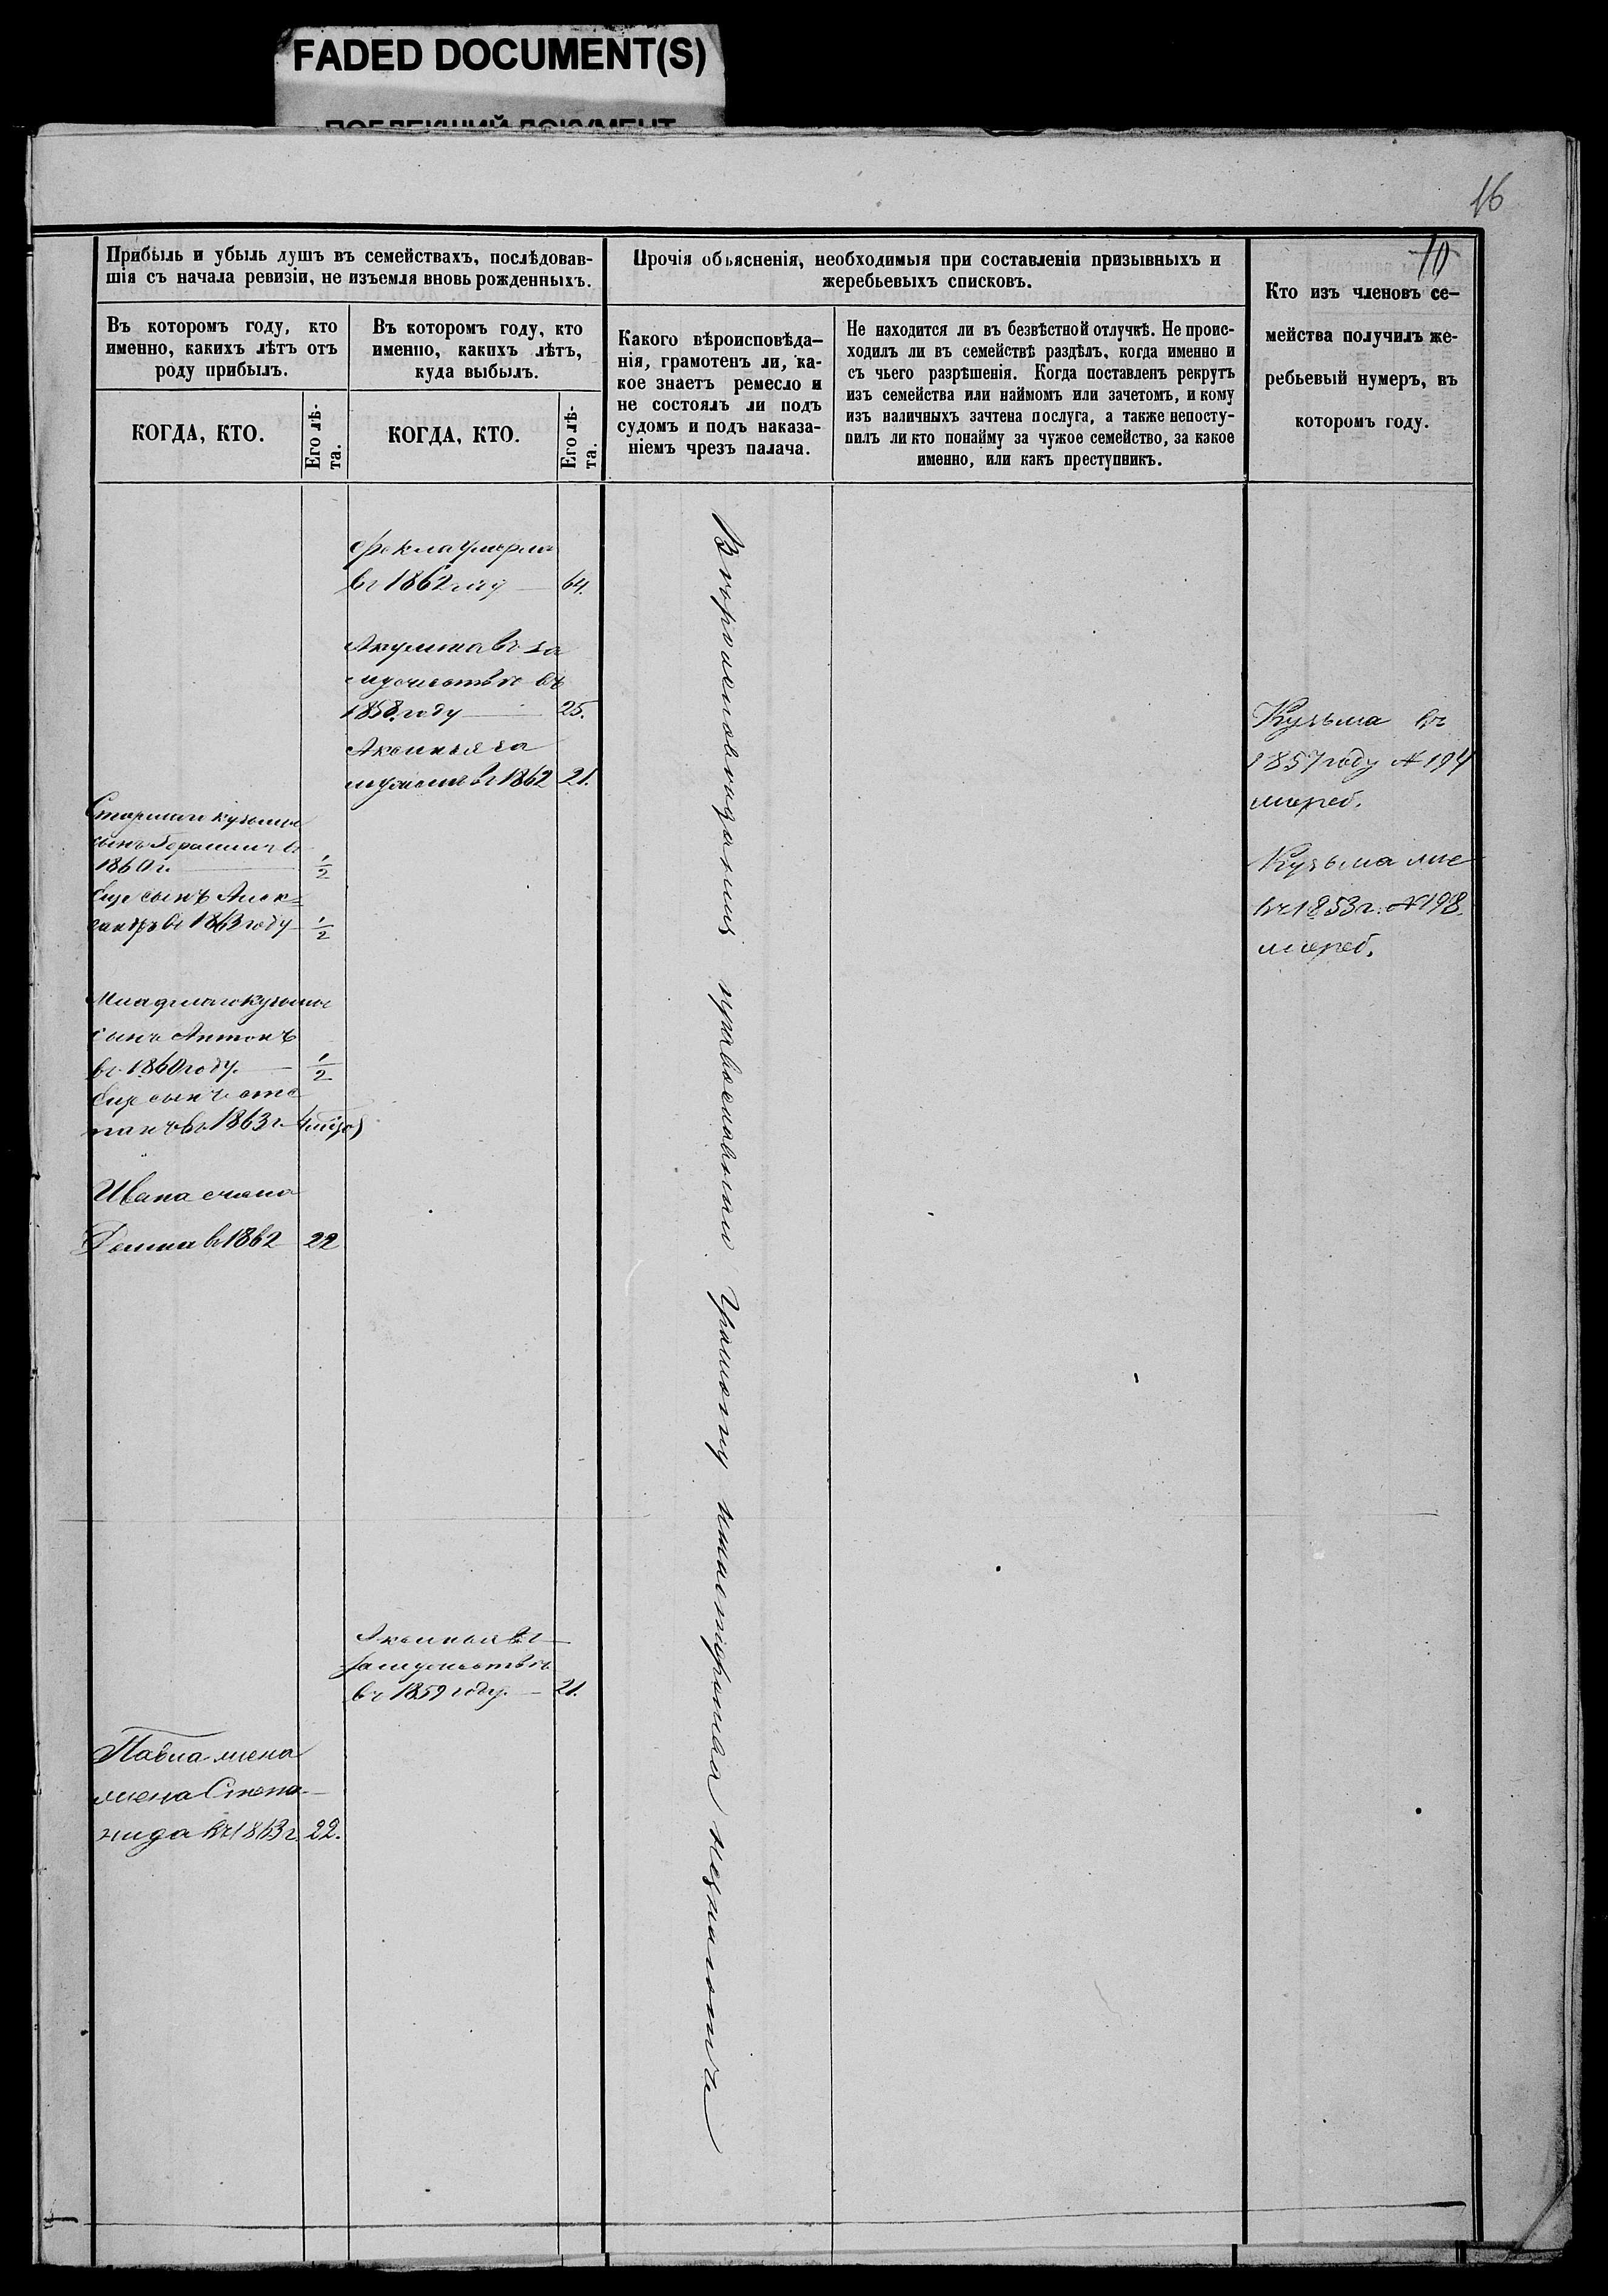 FADED DOCUMENT(S)
ПОБЛЕКШИЙ ДОКУМЕНТ
16
10
Прибыль и убыль душъ въ семействахъ, послѣдовав-
шія съ начала ревизіи, не изъемля вновь рожденныхъ.
Въ которомъ году, кто
именно, какихъ лѣтъ отъ
роду прибылъ.
КОГДА, КТО.
Его лѣ-
та.
Въ которомъ году, кто
именно, какихъ лѣтъ,
куда выбылъ.
КОГДА, КТО.
Его лѣ-
та.
Прочія обьясненія, необходимыя при составленіи призывныхъ и
жеребьевыхъ списковъ.
Какого вѣроисповѣда-
нія, грамотенъ ли, ка-
кое знаетъ ремесло и
не состоялъ ли подъ
судомъ и подъ наказа-
ніемъ чрезъ палача.
Не находится ли въ безвѣстной отлучкѣ. Не проис-
ходилъ ли въ семействѣ раздѣлъ, когда именно и
съ чьего разрѣшенія. Когда поставленъ рекрутъ
изъ семейства или наймомъ или зачетомъ, и кому
изъ наличныхъ зачтена послуга, а также непосту-
пилъ ли кто понайму за чужое семейство, за какое
именно, или какъ преступникъ.
Кто изъ членовъ се-
мейства получилъ же-
ребьевый нумеръ, въ
которомъ году.
Фекла умерла
въ 1862 году 64.
Акулина въ за
мужествѣ въ
1858 году 25.
Аксинья за
мужемъ въ 1862 21.
Старшаго кузьмы
сынъ Герасимъ въ
1860 г. 1/2
Еще сынъ Алек=
сандръ въ 1863 году 1/2
Младшаго кузьмы
сынъ Антонъ
въ 1860 году. 1/2
Еще сынъ Сте
панъ въ 1863 г.
Ивана жена
Домна въ 1862 22
Аксинья въ
замужествѣ
въ 1859 году. 21.
Павла жена
жена Степа-
нида въ 1863 г. 22.
Вероисповеданія православнаго Грамоту ниаго
Кузьма въ
1857 году № 194
жереб.
Кузьма
въ 1853 г. № 198.
жереб.